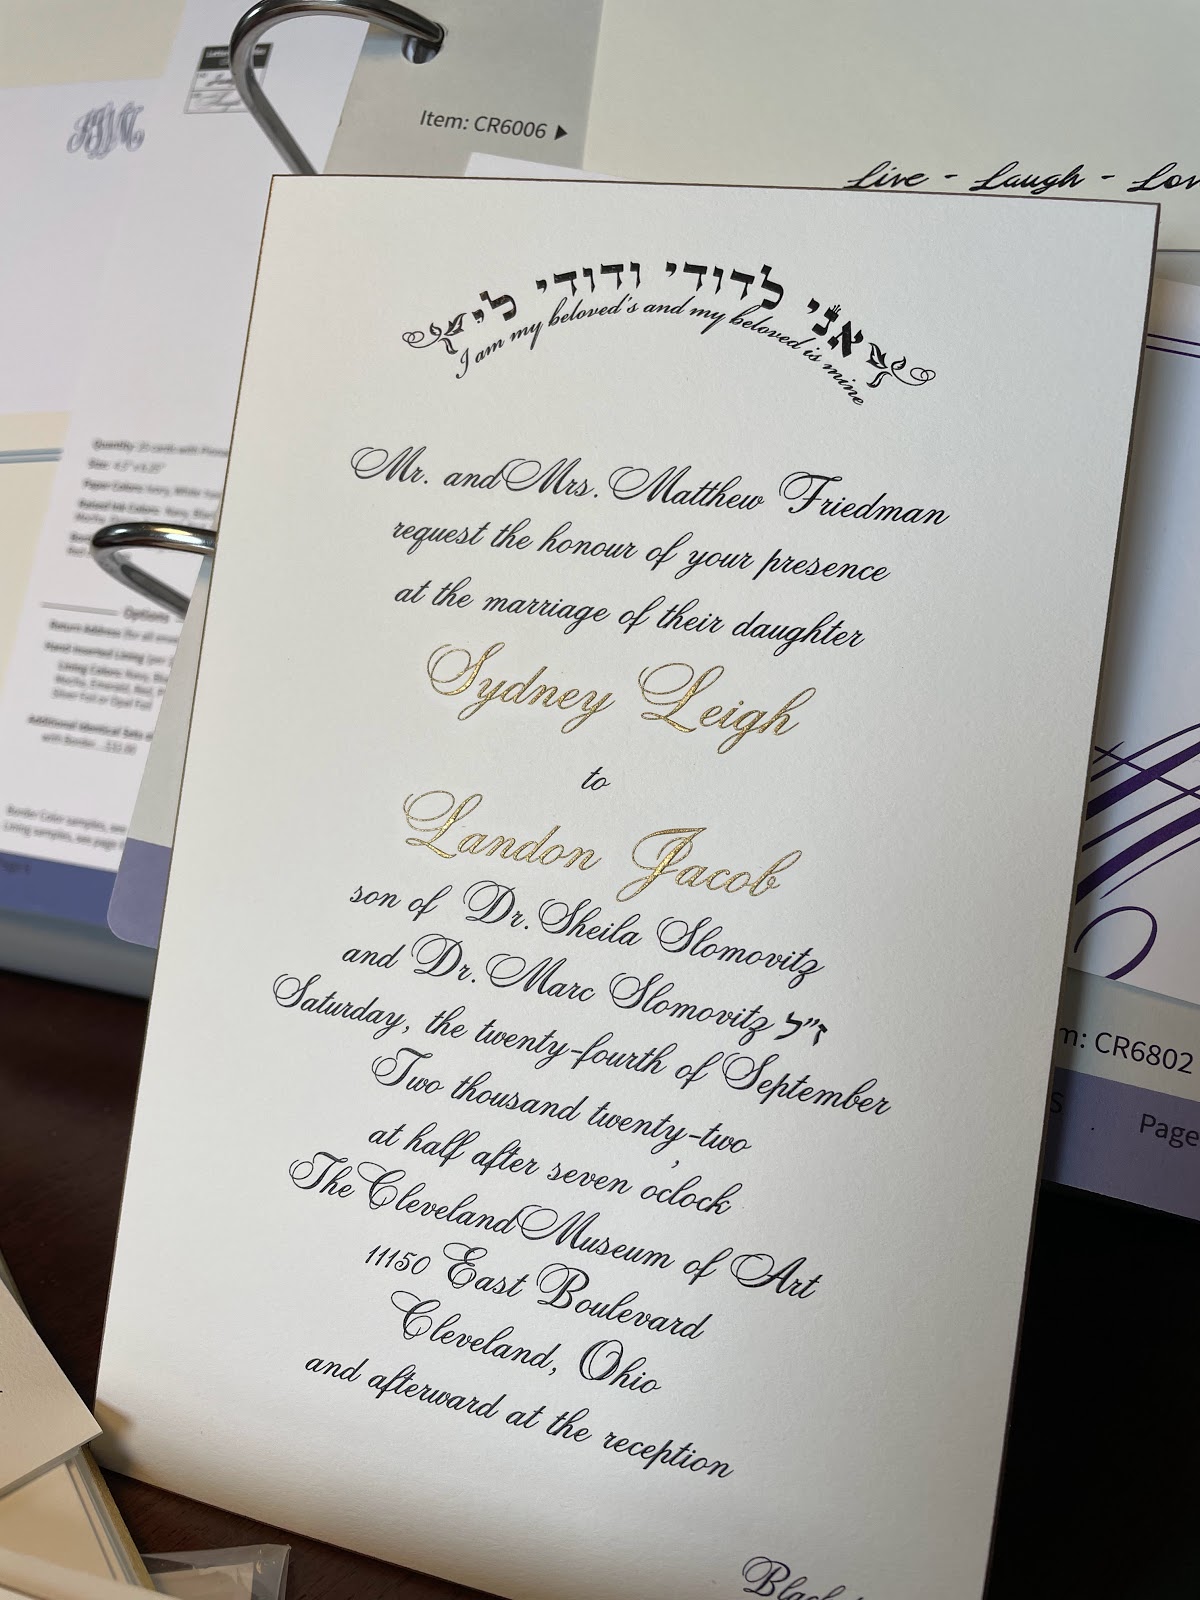 Item: CR6006 ▶
Live - Laugh - Lov
אני לדודי ודודי לי
I am my beloved's and my beloved is mine
Mr. and Mrs. Matthew Friedman
request the honour of your presence
at the marriage of their daughter
Sydney Leigh
to
Landon Jacob
son of Dr. Sheila Slomovitz
and Dr. Marc Slomovitz ז״ל
Saturday, the twenty-fourth of September
Two thousand twenty-two
at half after seven o'clock
The Cleveland Museum of Art
11150 East Boulevard
Cleveland, Ohio
and afterward at the reception
Black
Quantity: 25 cards with
Size: 4.5" x 6.25"
Paper Colors: Ivory, White
Options
Return Address (for all
Hand Inserted Lining
Lining Colors: Navy,
Silver Foil or Opal Foil
Additional Identical Sets
with Border
Border Color samples, see
Lining samples, see page
m: CR6802
S
Page